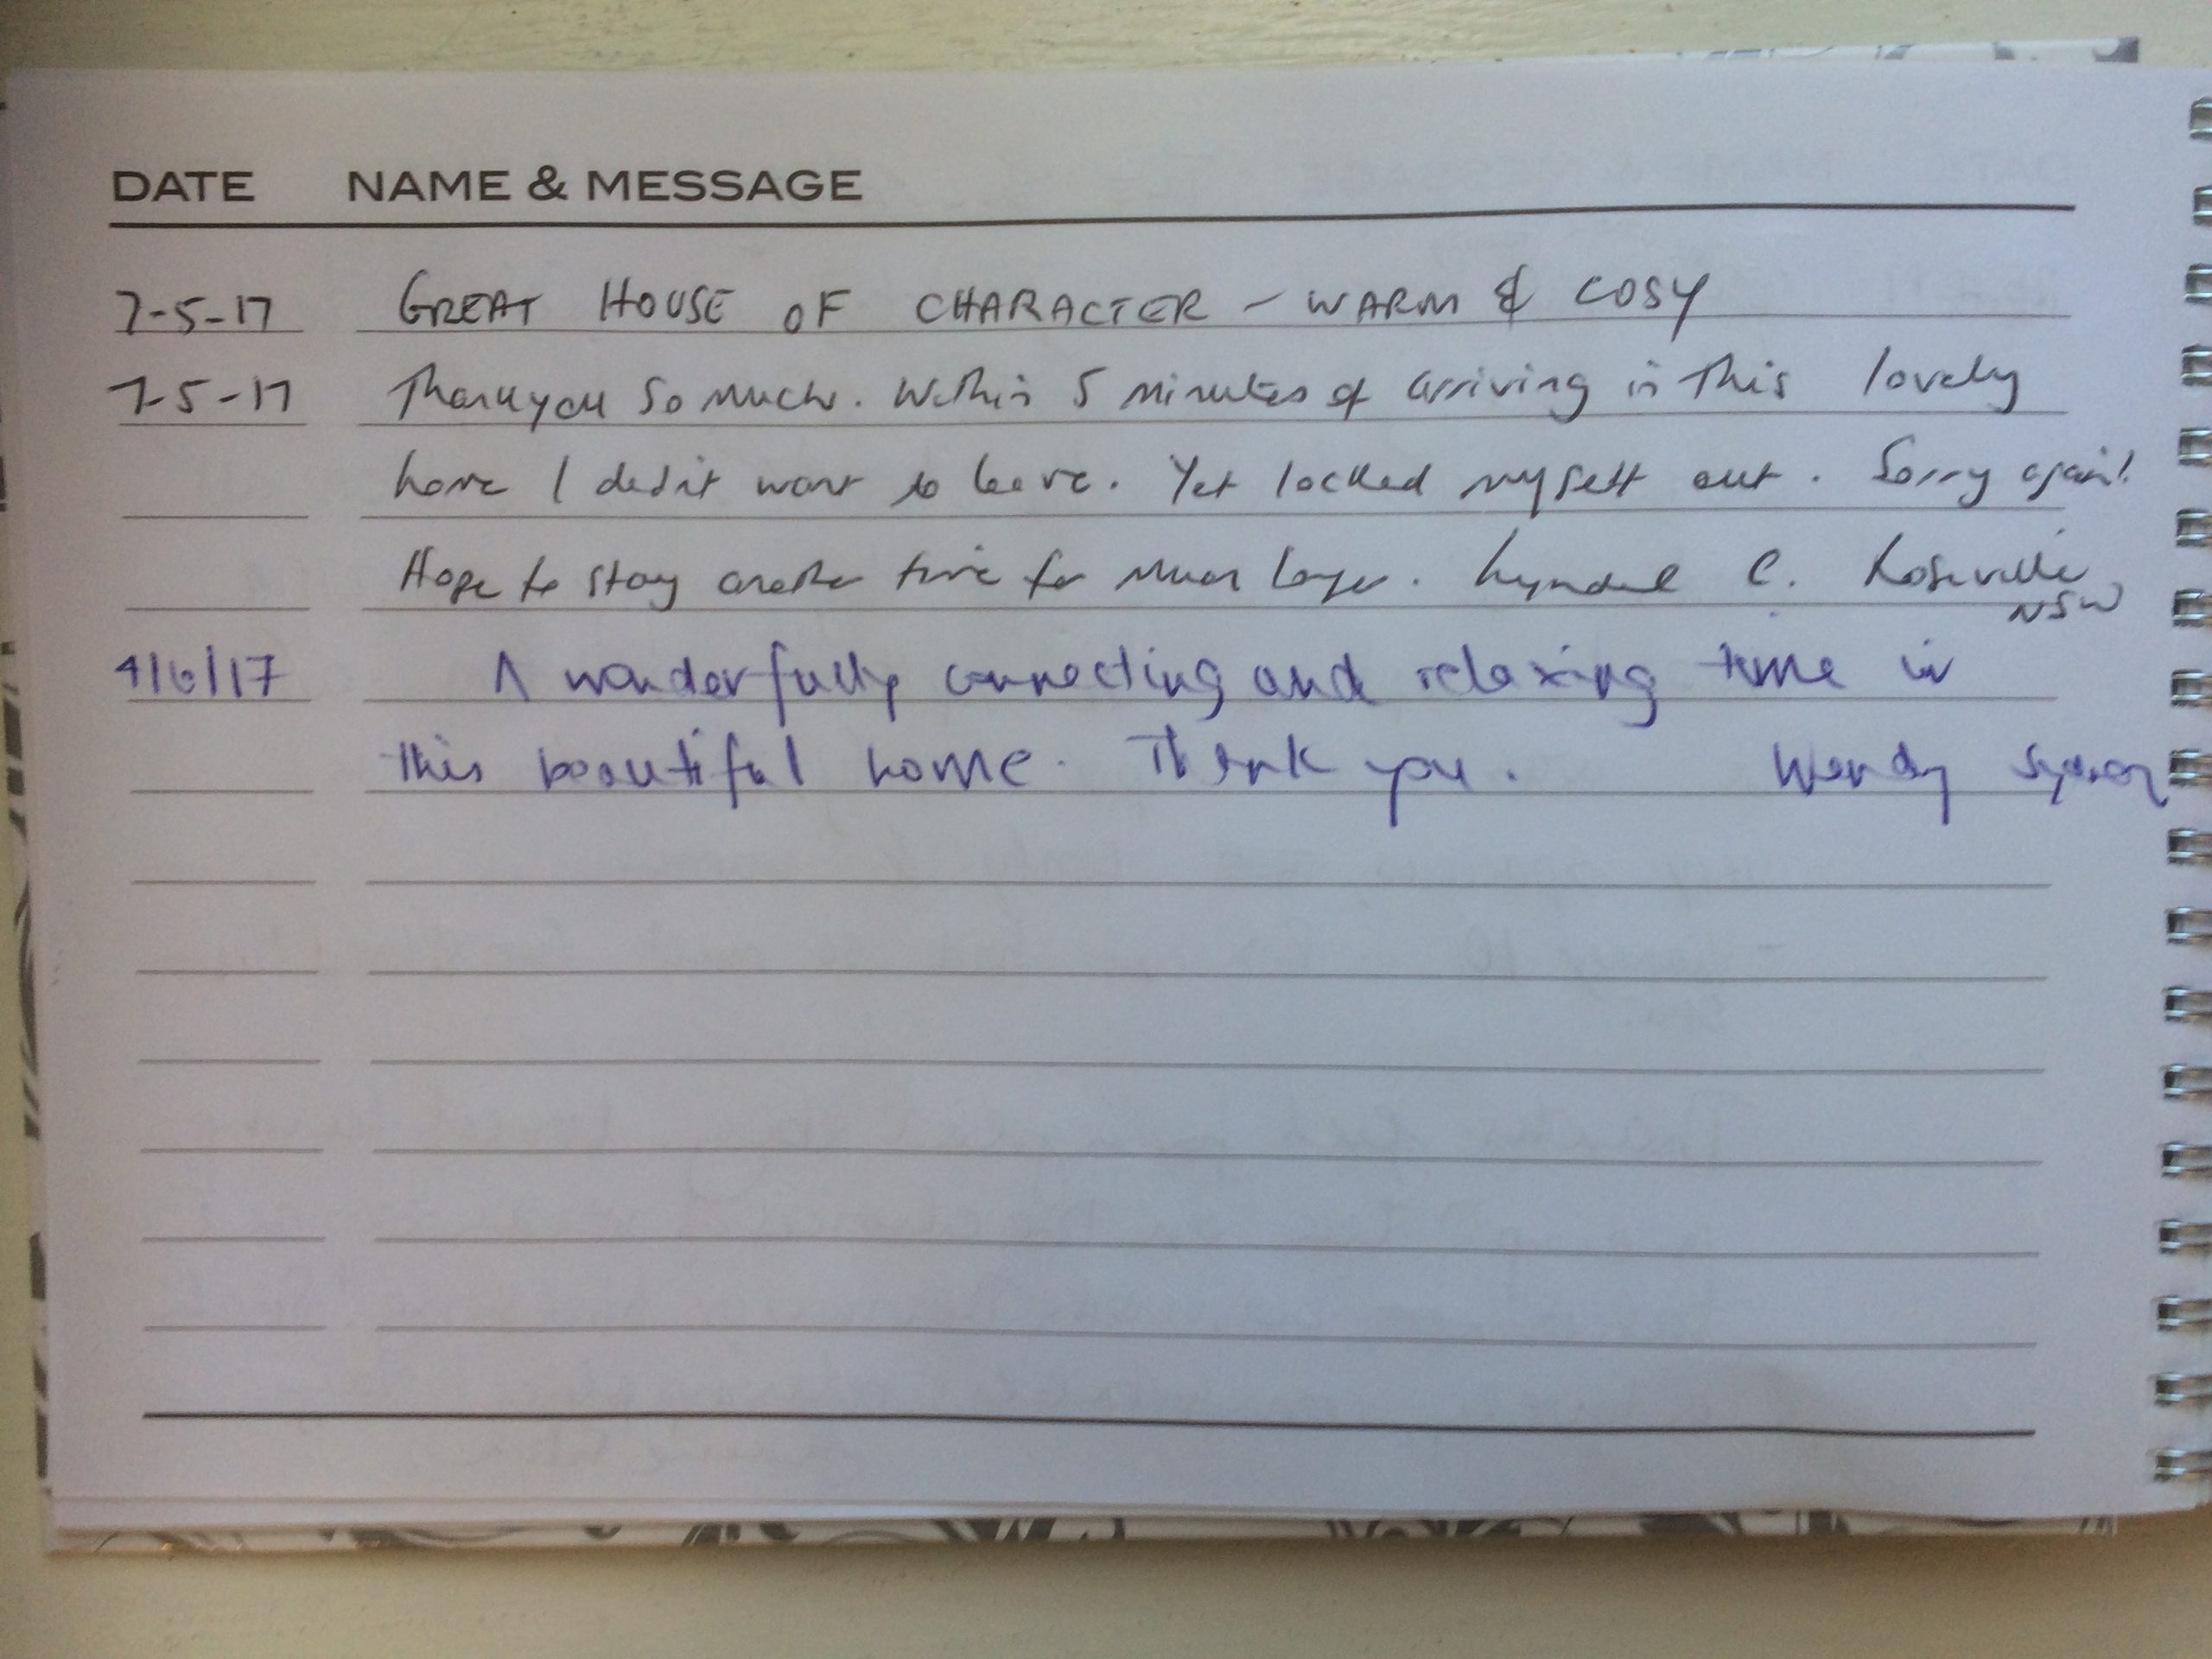 DATE NAME & MESSAGE
7-5-17 GREAT HOUSE OF CHARACTER - WARM & COSY
7-5-17 Thankyou so much. Within 5 minutes of arriving in this lovely
home I didn't want to leave. Yet locked myself out. Sorry again!
Hope to stay another time for much longer. Lyndal C. Roseville
NSW
4/6/17 A wonderfully connecting and relaxing time in
this beautiful home. Thank you. Wendy